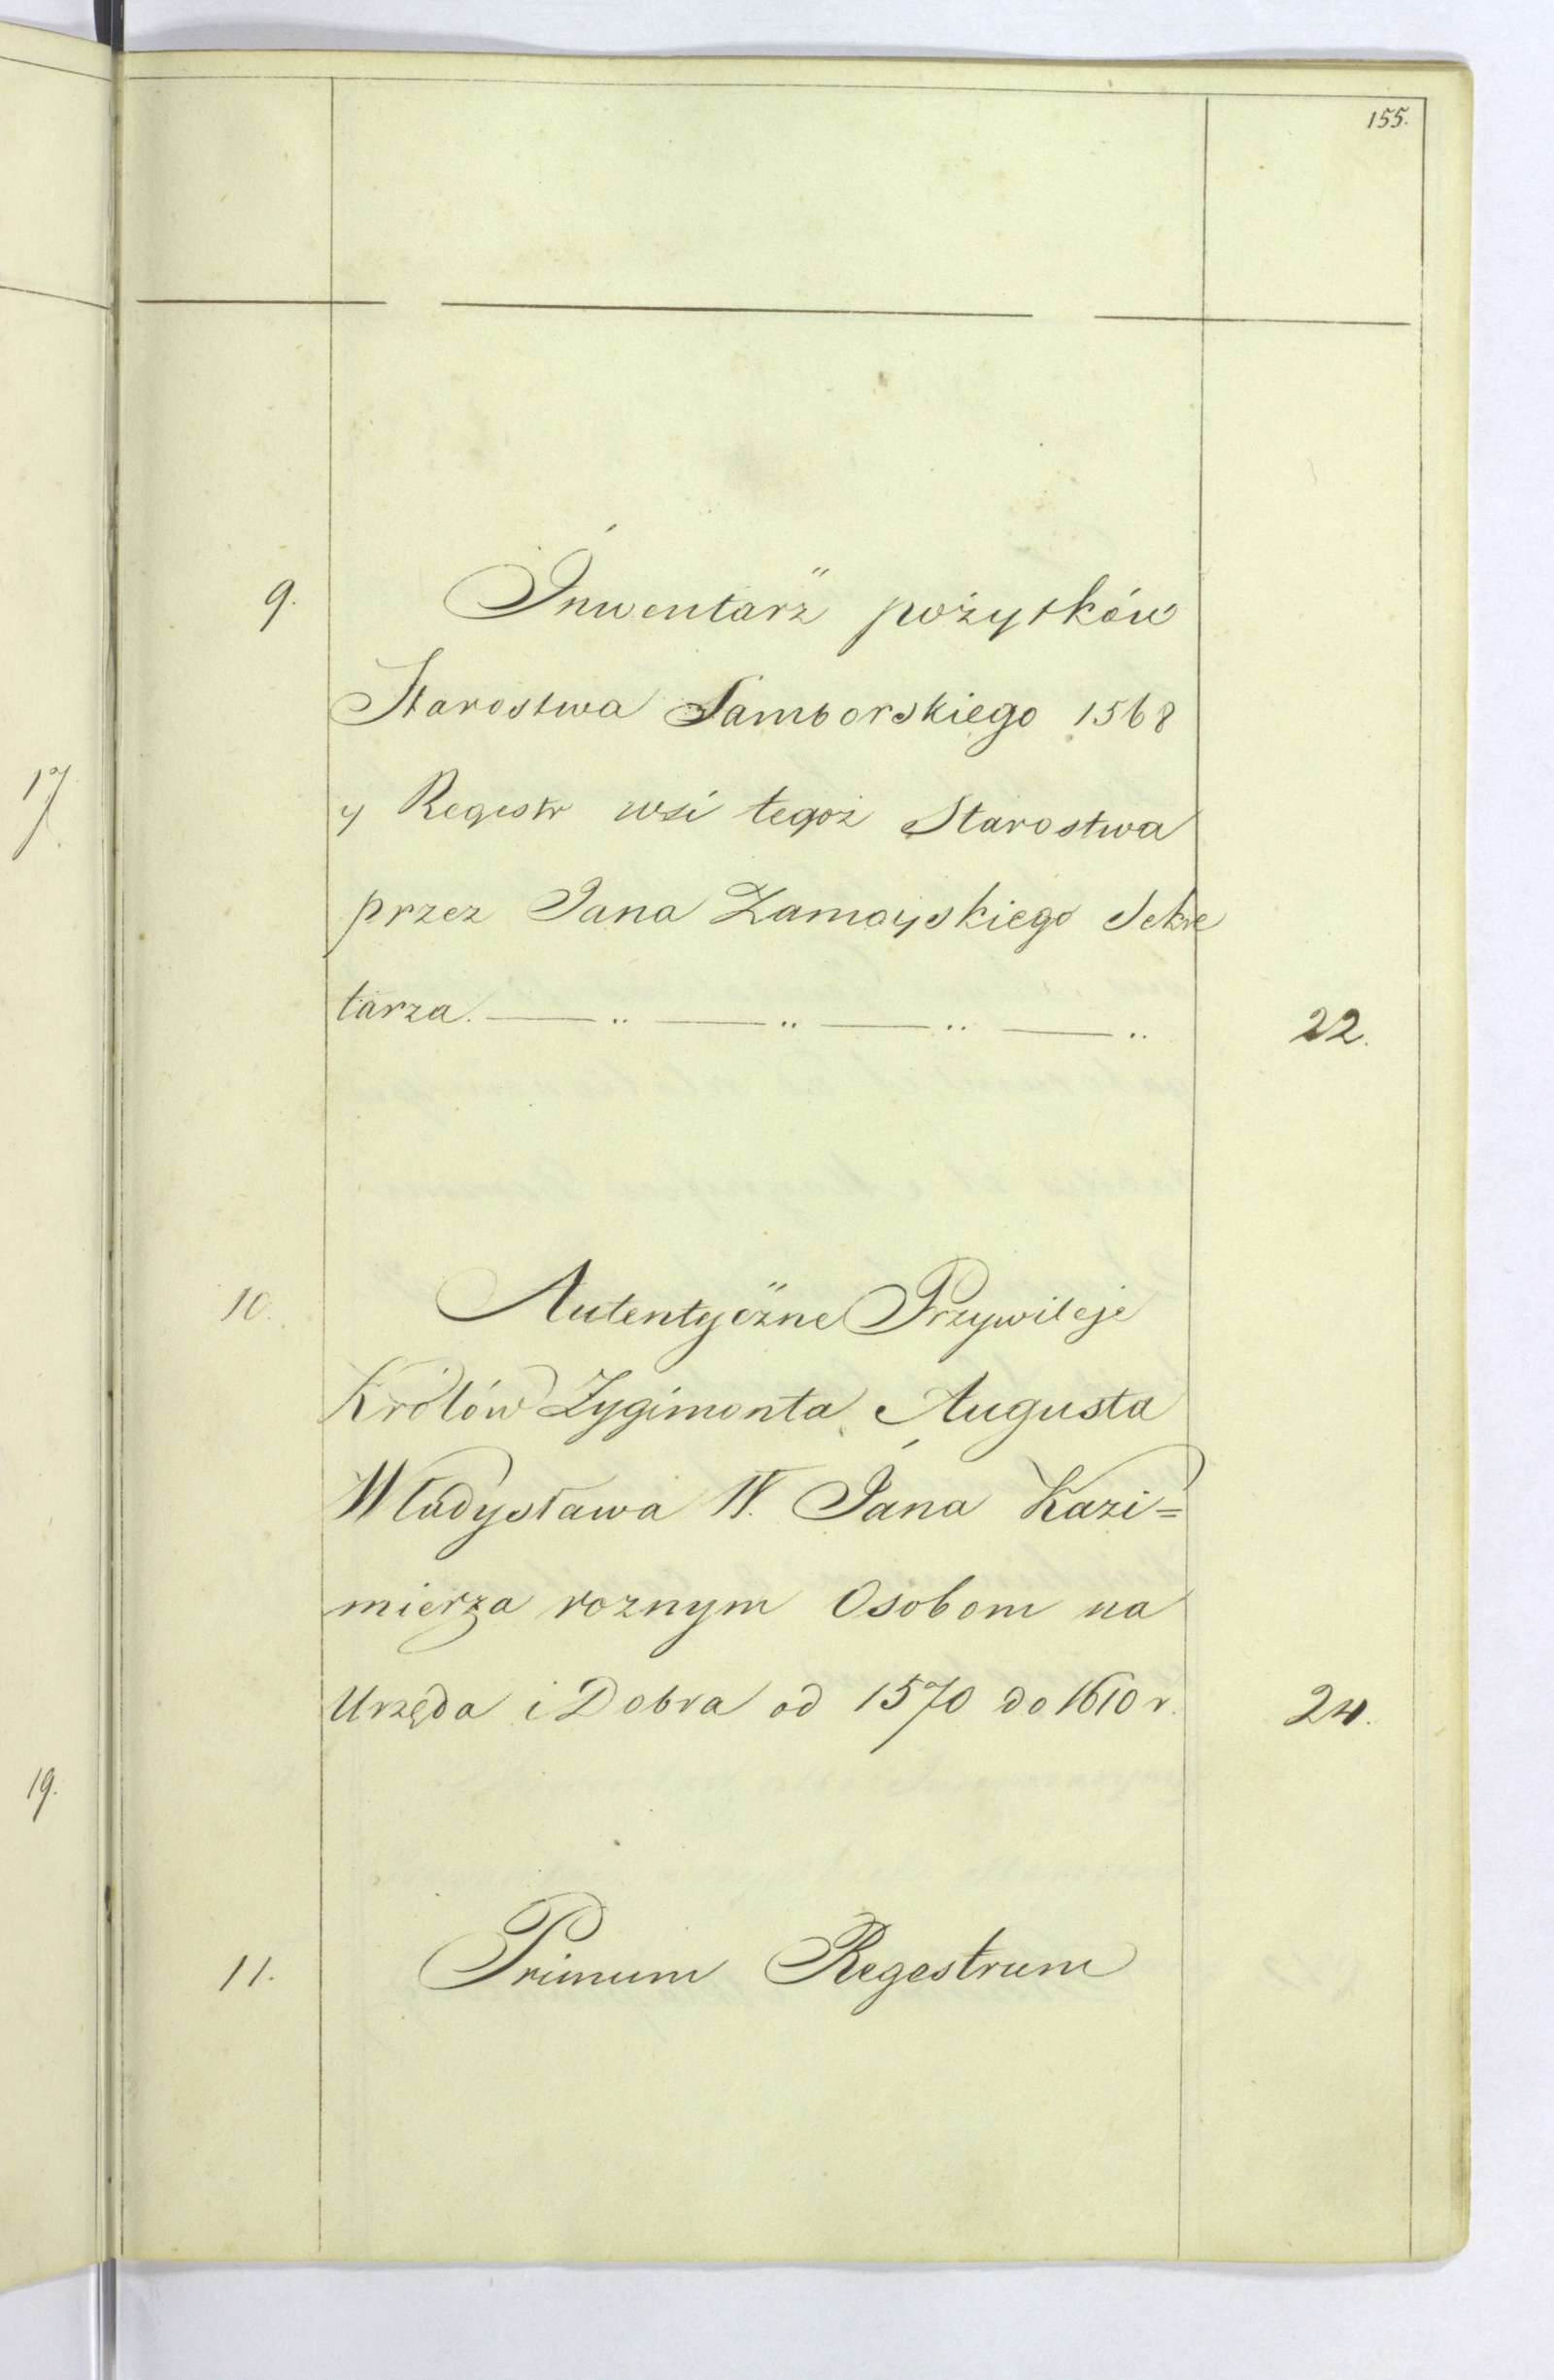 155.
9. Inwentarz pożytków
Starostwa Samborskiego 1568
y Regestr wsi tegoż Starostwa
przez Jana Zamoyskiego Sekre
tarza. 22.
10. Autentyczne Przywileje
Królów Zygimonta Augusta
Władysława IV. Jana Kazi=
mierza roznym Osobom na
Urzęda i Dobra od 1570 do 1610 r. 24.
11. Primum Regestrum
17.
19.